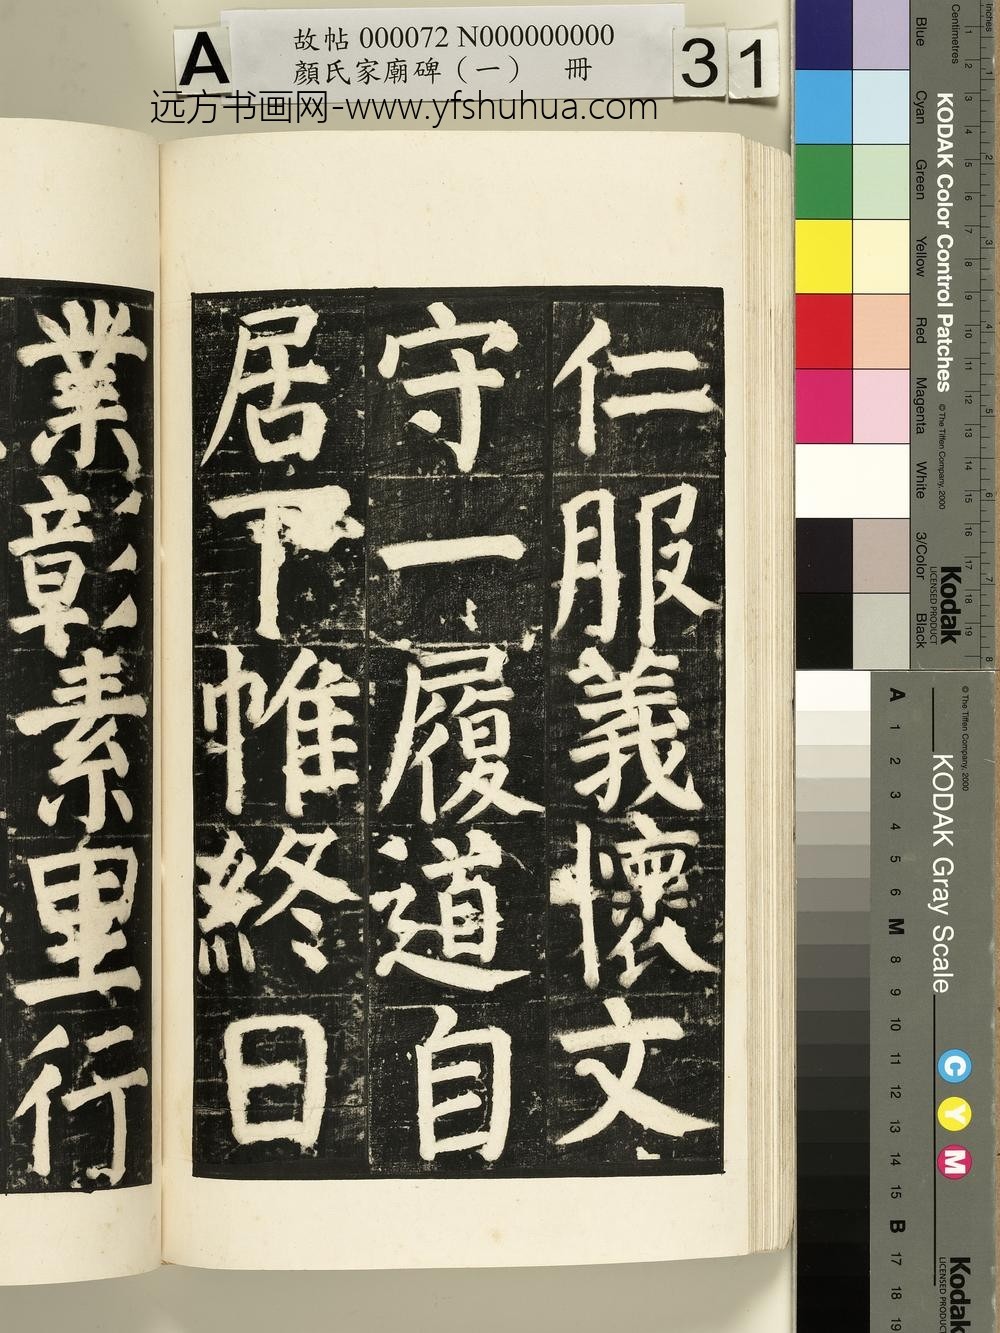 A
故帖 000072 N000000000
顏氏家廟碑（一） 冊
31
远方书画网-www.yfshuhua.com
仁服義懷文
守一履道自
居下帷終日
業彰素里行
Inches
Centimetres
1 2 3 4 5 6 7 8
1 2 3 4 5 6 7 8 9 10 11 12 13 14 15 16 17 18 19
Blue
Cyan
Green
Yellow
Red
Magenta
White
3/Color
Black
KODAK Color Control Patches
© The Tiffen Company, 2000
Kodak
LICENSED PRODUCT
© The Tiffen Company, 2000
KODAK Gray Scale
C
Y
M
Kodak
LICENSED PRODUCT
A 1 2 3 4 5 6 M 8 9 10 11 12 13 14 15 B 17 18 19